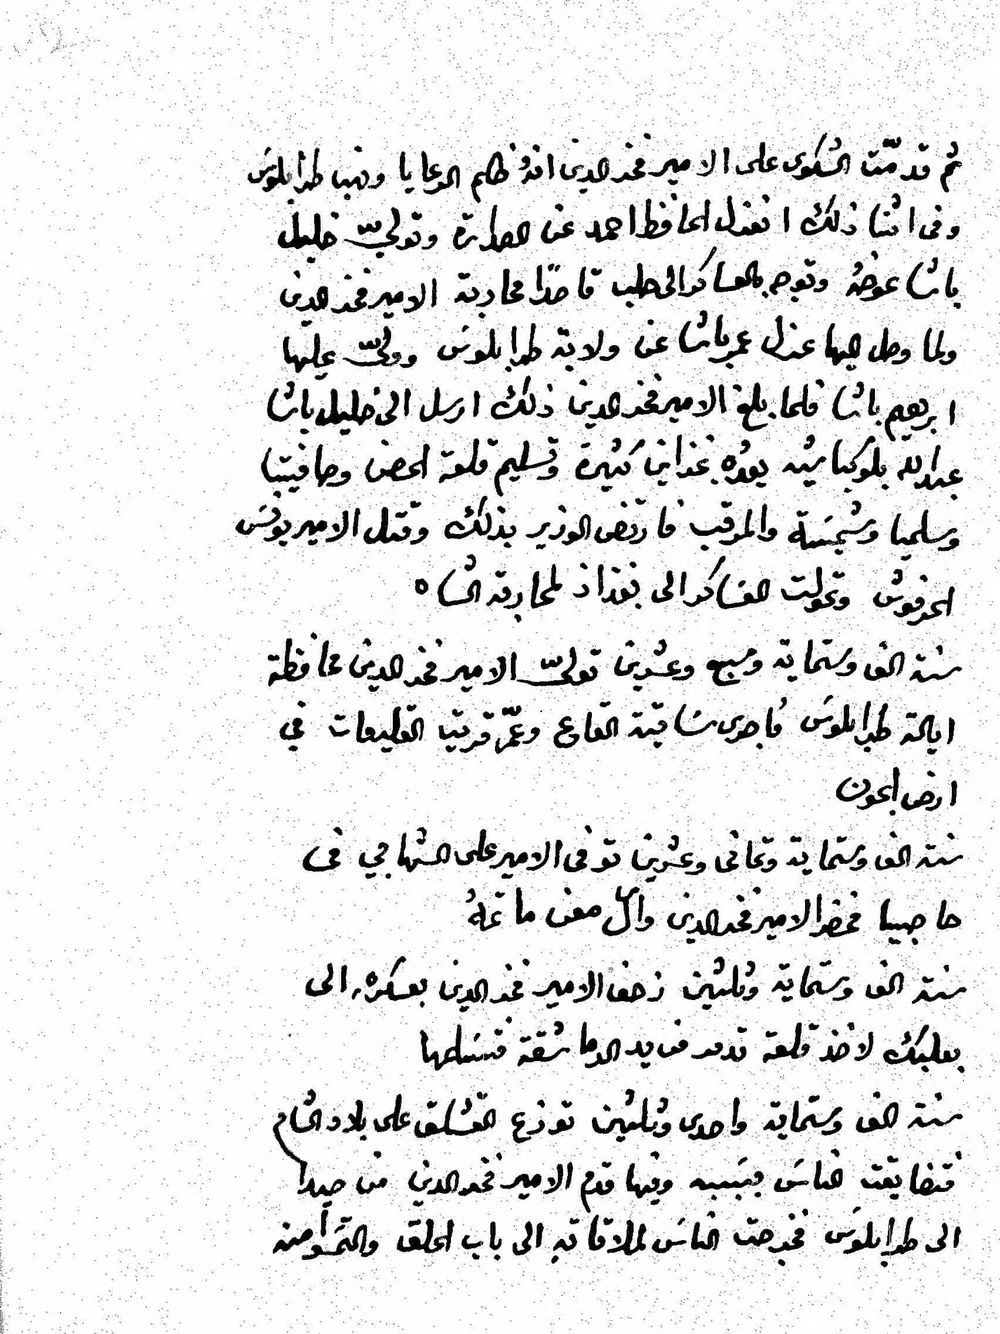 ثم قدمّت الشكوى على الامير فخر الدين انهُ ظلم الرعايا ونهب طرابلوس
وفى اثنا ذلك انعزل الحافظ احمد عن الصدارة وتولىّ خليل
باشا عوضهُ وتوجه بالعساكر الى حلب قاصدًا محاربة الامير فخر الدين
ولما وصل اليها عزل عمر باشا عن ولاية طرابلوس وولىّ عليها
ابرهيم باشا فلما بلغ الامير فخر الدين ذلك ارسل الى خليل باشا
عبدالله بلوكباشيه يعدُه بخزاين كثيرة وتسليم قلعة الحصن وصافيتا
وسلميا وشميسة والمرقب فارتضى الوزير بذلك وقتل الامير يونس
الحرفوش وتحولت العساكر الى بغداد لمحاربة الشاه
سنة الف وستماية وسبع وعشرين تولىّ الامير فخر الدين محافظة
ايالة طرابلوس فاجرى ساقية القاع وعمّر قرية القليعات في
ارض الجون
سنة الف وستماية وثمانى وعشرين توفى الامير على الشهابي فى
حاصبيا فحضر الامير فخر الدين وال معن ماتمهُ
سنة الف وستماية وثلثين زحف الامير فخر الدين بعسكره الى
بعلبك لاخذ قلعة تدمر من يد الدماشقة فتسلمها
سنة الف وستماية واحدى وثلثين توزع القشلق على بلاد الشام
فتضايقت الناس بسببه وفيها قدم الامير فخر الدين من صيدا
الى طرابلوس فخرجت الناس لملاقاته الى باب الحلق والتمسوا منه